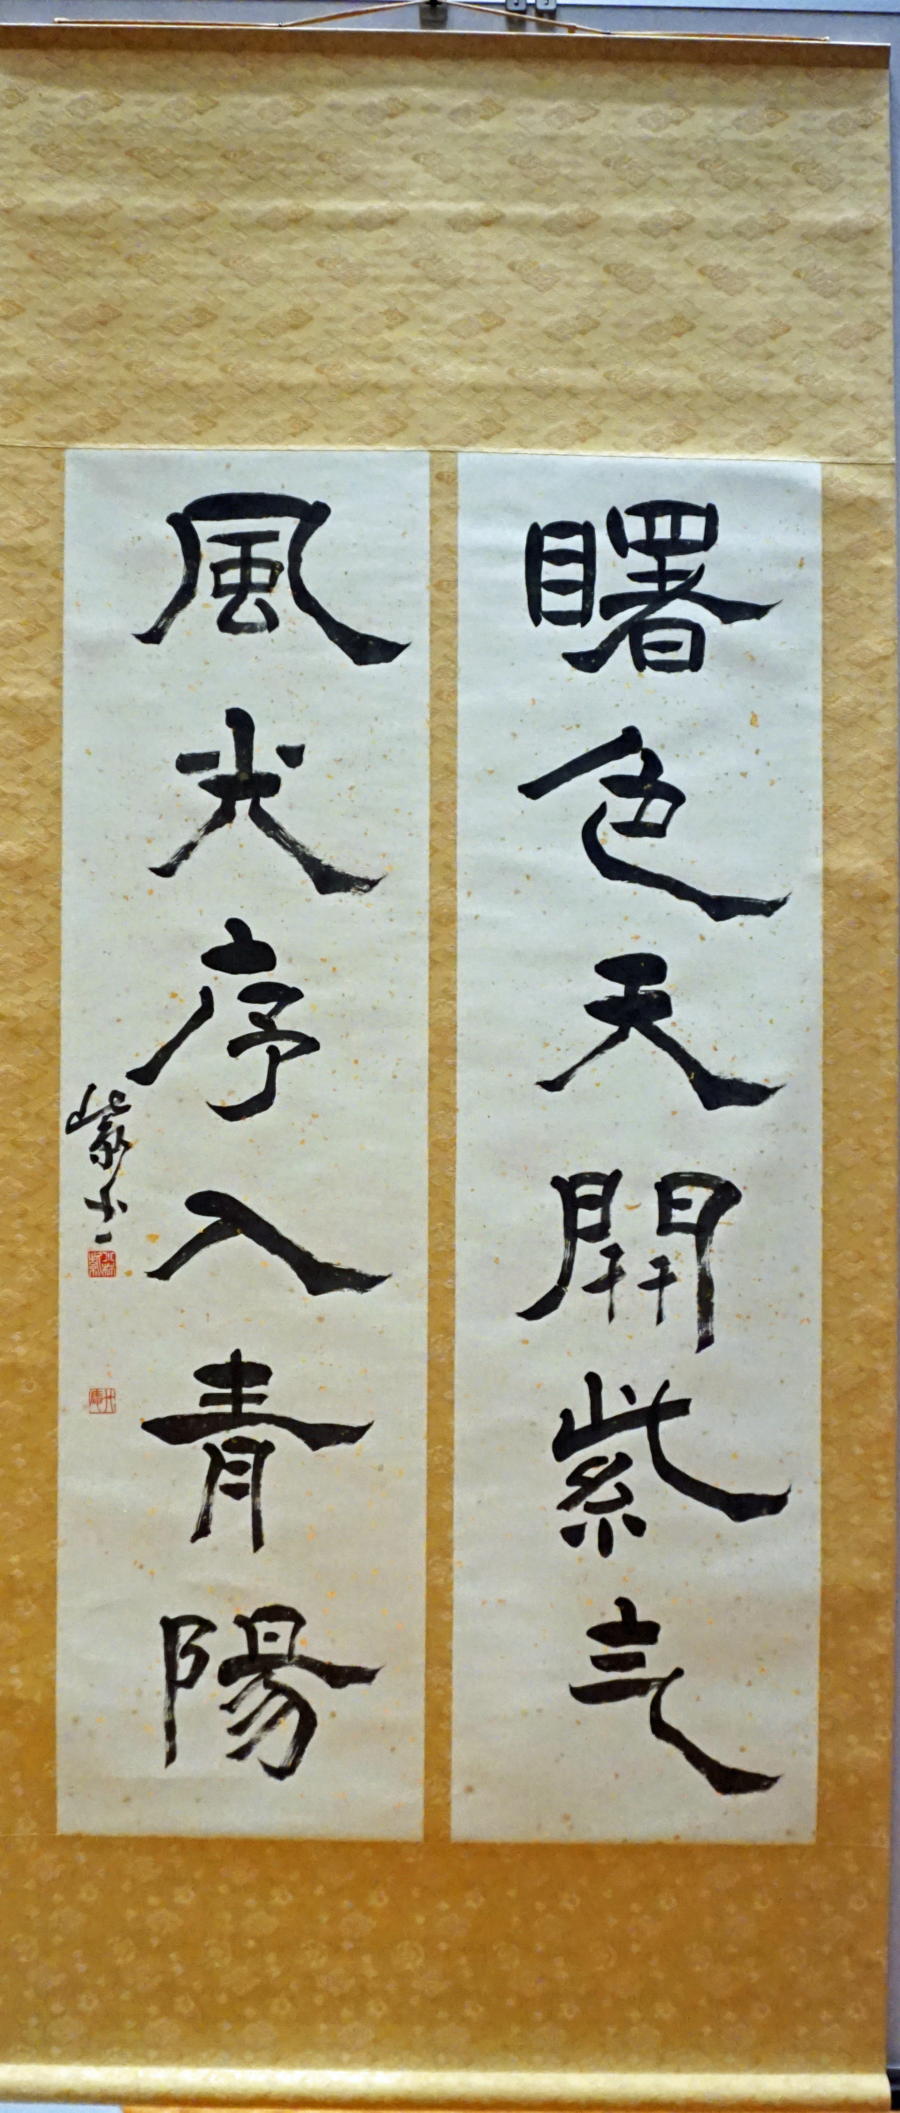 曙色天開紫气
風光序入青陽